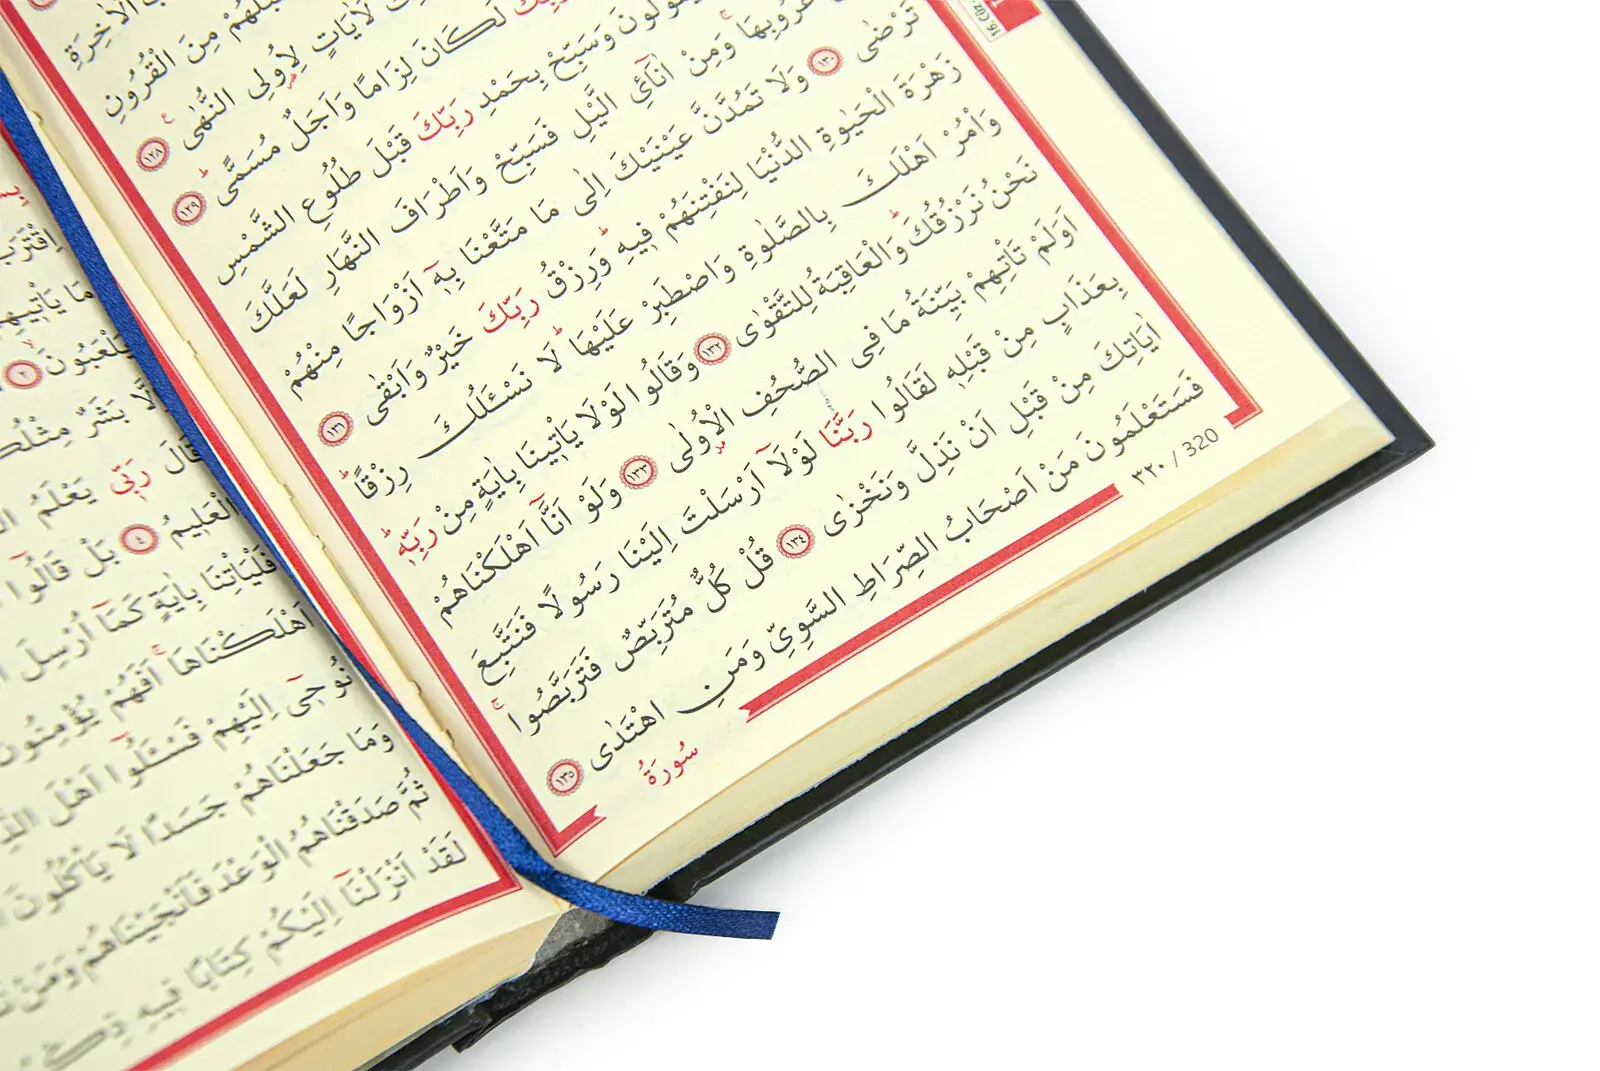 الْاٰخِرَةِ
مِنَ الْقُرُونِ
لَاٰيَاتٍ لِاُولِى النُّهٰى ١٢٨
لَكَانَ لِزَامًا وَاَجَلٌ مُسَمًّى ١٢٩
وَسَبِّحْ بِحَمْدِ رَبِّكَ قَبْلَ طُلُوعِ الشَّمْسِ
غُرُوبِهَا وَمِنْ اٰنَٓائِ الَّيْلِ فَسَبِّحْ وَاَطْرَافَ النَّهَارِ لَعَلَّكَ
تَرْضٰى ١٣٠ وَلَا تَمُدَّنَّ عَيْنَيْكَ اِلٰى مَا مَتَّعْنَا بِهٖٓ اَزْوَاجًا مِنْهُمْ
زَهْرَةَ الْحَيٰوةِ الدُّنْيَا لِنَفْتِنَهُمْ فِيهِ وَرِزْقُ رَبِّكَ خَيْرٌ وَاَبْقٰى ١٣١
وَاْمُرْ اَهْلَكَ بِالصَّلٰوةِ وَاصْطَبِرْ عَلَيْهَا لَا نَسْـَٔلُكَ رِزْقًا
نَحْنُ نَرْزُقُكَ وَالْعَاقِبَةُ لِلتَّقْوٰى ١٣٢ وَقَالُوا لَوْلَا يَاْتِينَا بِاٰيَةٍ مِنْ رَبِّهٖ
اَوَلَمْ تَاْتِهِمْ بَيِّنَةُ مَا فِى الصُّحُفِ الْاُولٰى ١٣٣ وَلَوْ اَنَّٓا اَهْلَكْنَاهُمْ
بِعَذَابٍ مِنْ قَبْلِهٖ لَقَالُوا رَبَّنَا لَوْلَٓا اَرْسَلْتَ اِلَيْنَا رَسُولًا فَنَتَّبِعَ
اٰيَاتِكَ مِنْ قَبْلِ اَنْ نَذِلَّ وَنَخْزٰى ١٣٤ قُلْ كُلٌّ مُتَرَبِّصٌ فَتَرَبَّصُوا
فَسَتَعْلَمُونَ مَنْ اَصْحَابُ الصِّرَاطِ السَّوِيِّ وَمَنِ اهْتَدٰى ١٣٥
٣٢٠ / 320
سُورَةُ
16. CÜZ
اِقْتَرَبَ
مَا يَاْتِيهِمْ
يَلْعَبُونَ ٢
اِلَّا بَشَرٌ مِثْلُكُمْ
قَالَ رَبِّى يَعْلَمُ
الْعَلِيمُ ٤ بَلْ قَالُٓوا
فَلْيَاْتِنَا بِاٰيَةٍ كَمَٓا اُرْسِلَ
اَهْلَكْنَاهَا اَفَهُمْ يُؤْمِنُونَ
نُوحِٓى اِلَيْهِمْ فَسْـَٔلُٓوا اَهْلَ
وَمَا جَعَلْنَاهُمْ جَسَدًا لَا يَاْكُلُونَ
ثُمَّ صَدَقْنَاهُمُ الْوَعْدَ فَاَنْجَيْنَاهُمْ وَمَنْ
لَقَدْ اَنْزَلْنَٓا اِلَيْكُمْ كِتَابًا فِيهِ